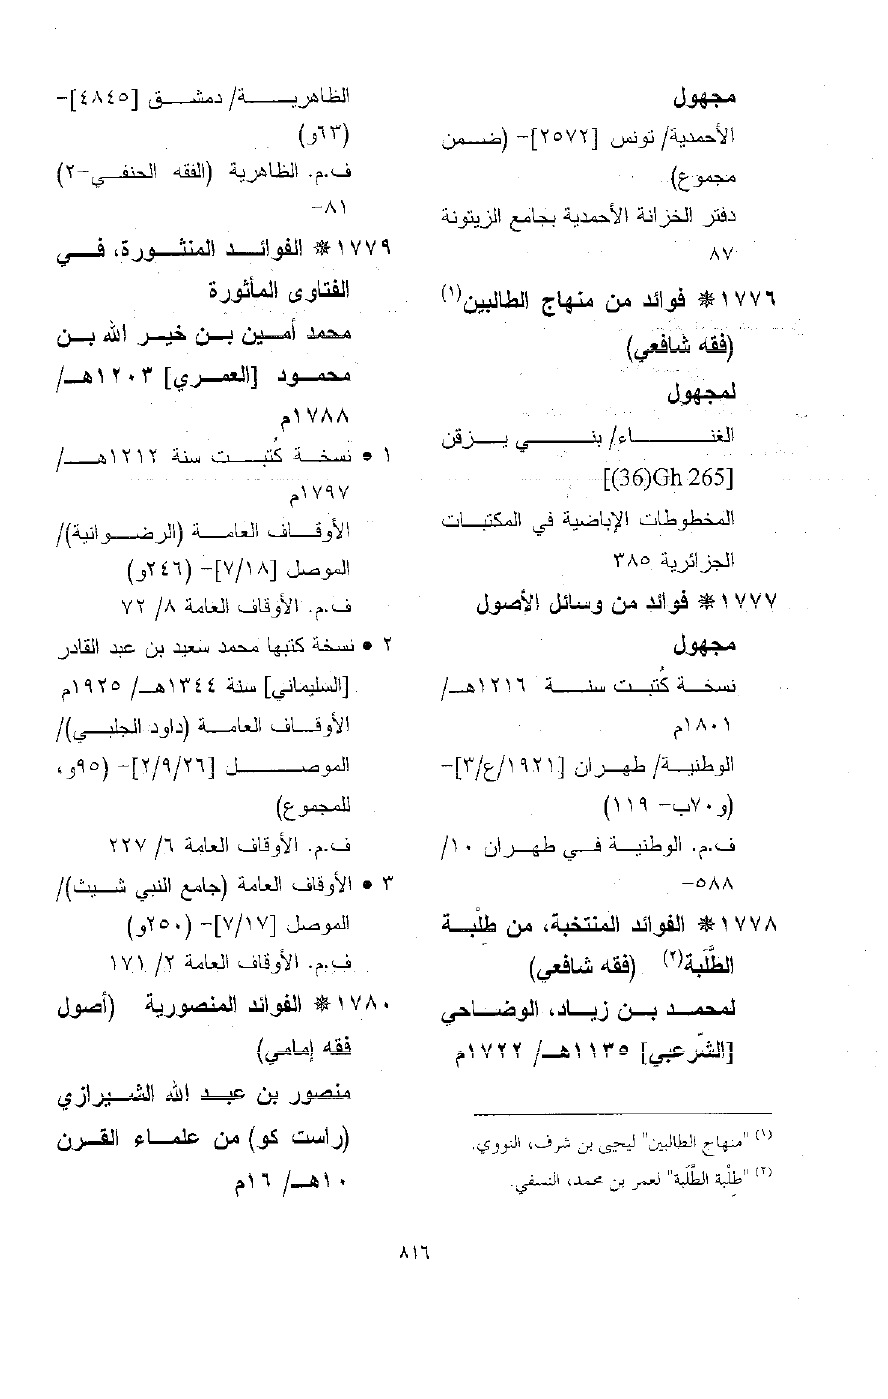 مجهول
الأحمدية/ تونس [٢٥٧٢]- (ضمن
مجموع)
دفتر الخزانة الأحمدية بجامع الزيتونة
٨٧
١٧٧٦* فوائد من منهاج الطالبين(١)
(فقه شافعي)
لمجهول
الغناء/ بني يزقن
[(36)Gh 265]
المخطوطات الإباضية في المكتبات
الجزائرية ٣٨٥
١٧٧٧* فوائد من وسائل الأصول
مجهول
نسخة كُتبت سنة ١٢١٦هـ/
١٨٠١م
الوطنية/ طهران [١٩٢١/ع/٣]-
(و٧٠ب- ١١٩)
ف.م. الوطنية في طهران ١٠/
٥٨٨-
١٧٧٨* الفوائد المنتخبة، من طلْبة
الطَّلَبة(٢) (فقه شافعي)
لمحمد بن زياد، الوضاحي
[الشّرعبي] ١١٣٥هـ/ ١٧٢٢م
(١) "منهاج الطالبين" ليحيى بن شرف، النووي.
(٢) "طِلْبة الطَّلَبة" لعمر بن محمد، النسفي.
الظاهرية/ دمشق [٤٨٤٥]-
(٦٣و)
ف.م. الظاهرية (الفقه الحنفي-٢)
٨١-
١٧٧٩* الفوائد المنثورة، في
الفتاوى المأثورة
محمد أمين بن خير الله بن
محمود [العمري] ١٢٠٣هـ/
١٧٨٨م
١ • نسخة كُتبت سنة ١٢١٢هـ/
١٧٩٧م
الأوقاف العامة (الرضوانية)/
الموصل [٧/١٨]- (٢٤٦و)
ف.م. الأوقاف العامة ٨/ ٧٢
٢ • نسخة كتبها محمد سعيد بن عبد القادر
[السليماني] سنة ١٣٤٤هـ/ ١٩٢٥م
الأوقاف العامة (داود الجلبي)/
الموصل [٢/٩/٢٦]- (٩٥و،
للمجموع)
ف.م. الأوقاف العامة ٦/ ٢٢٧
٣ • الأوقاف العامة (جامع النبي شيث)/
الموصل [٧/١٧]- (٢٥٠و)
ف.م. الأوقاف العامة ٢/ ١٧١
١٧٨٠* الفوائد المنصورية (أصول
فقه إمامي)
منصور بن عبد الله الشيرازي
(راست كو) من علماء القرن
١٠هـ/ ١٦م
٨١٦